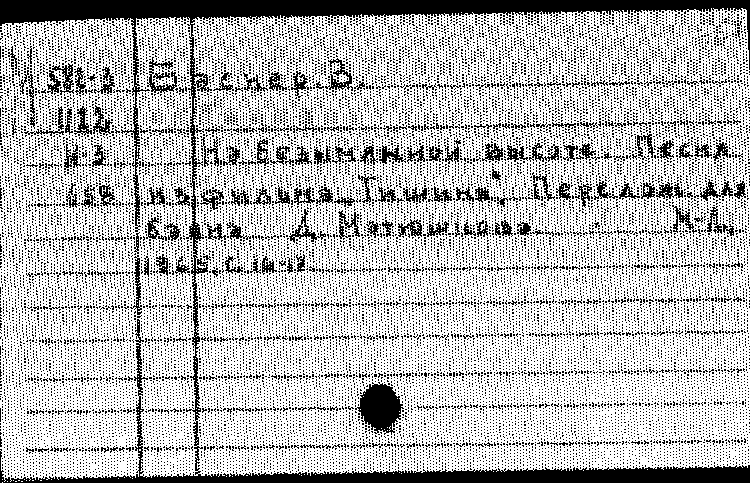 Баснер В.
На безымянной высоте. Песня
из фильма „Тишина“. Перелож. для
баяна Д. Матюшкова. М.-Л.,
1965. С. 16-17